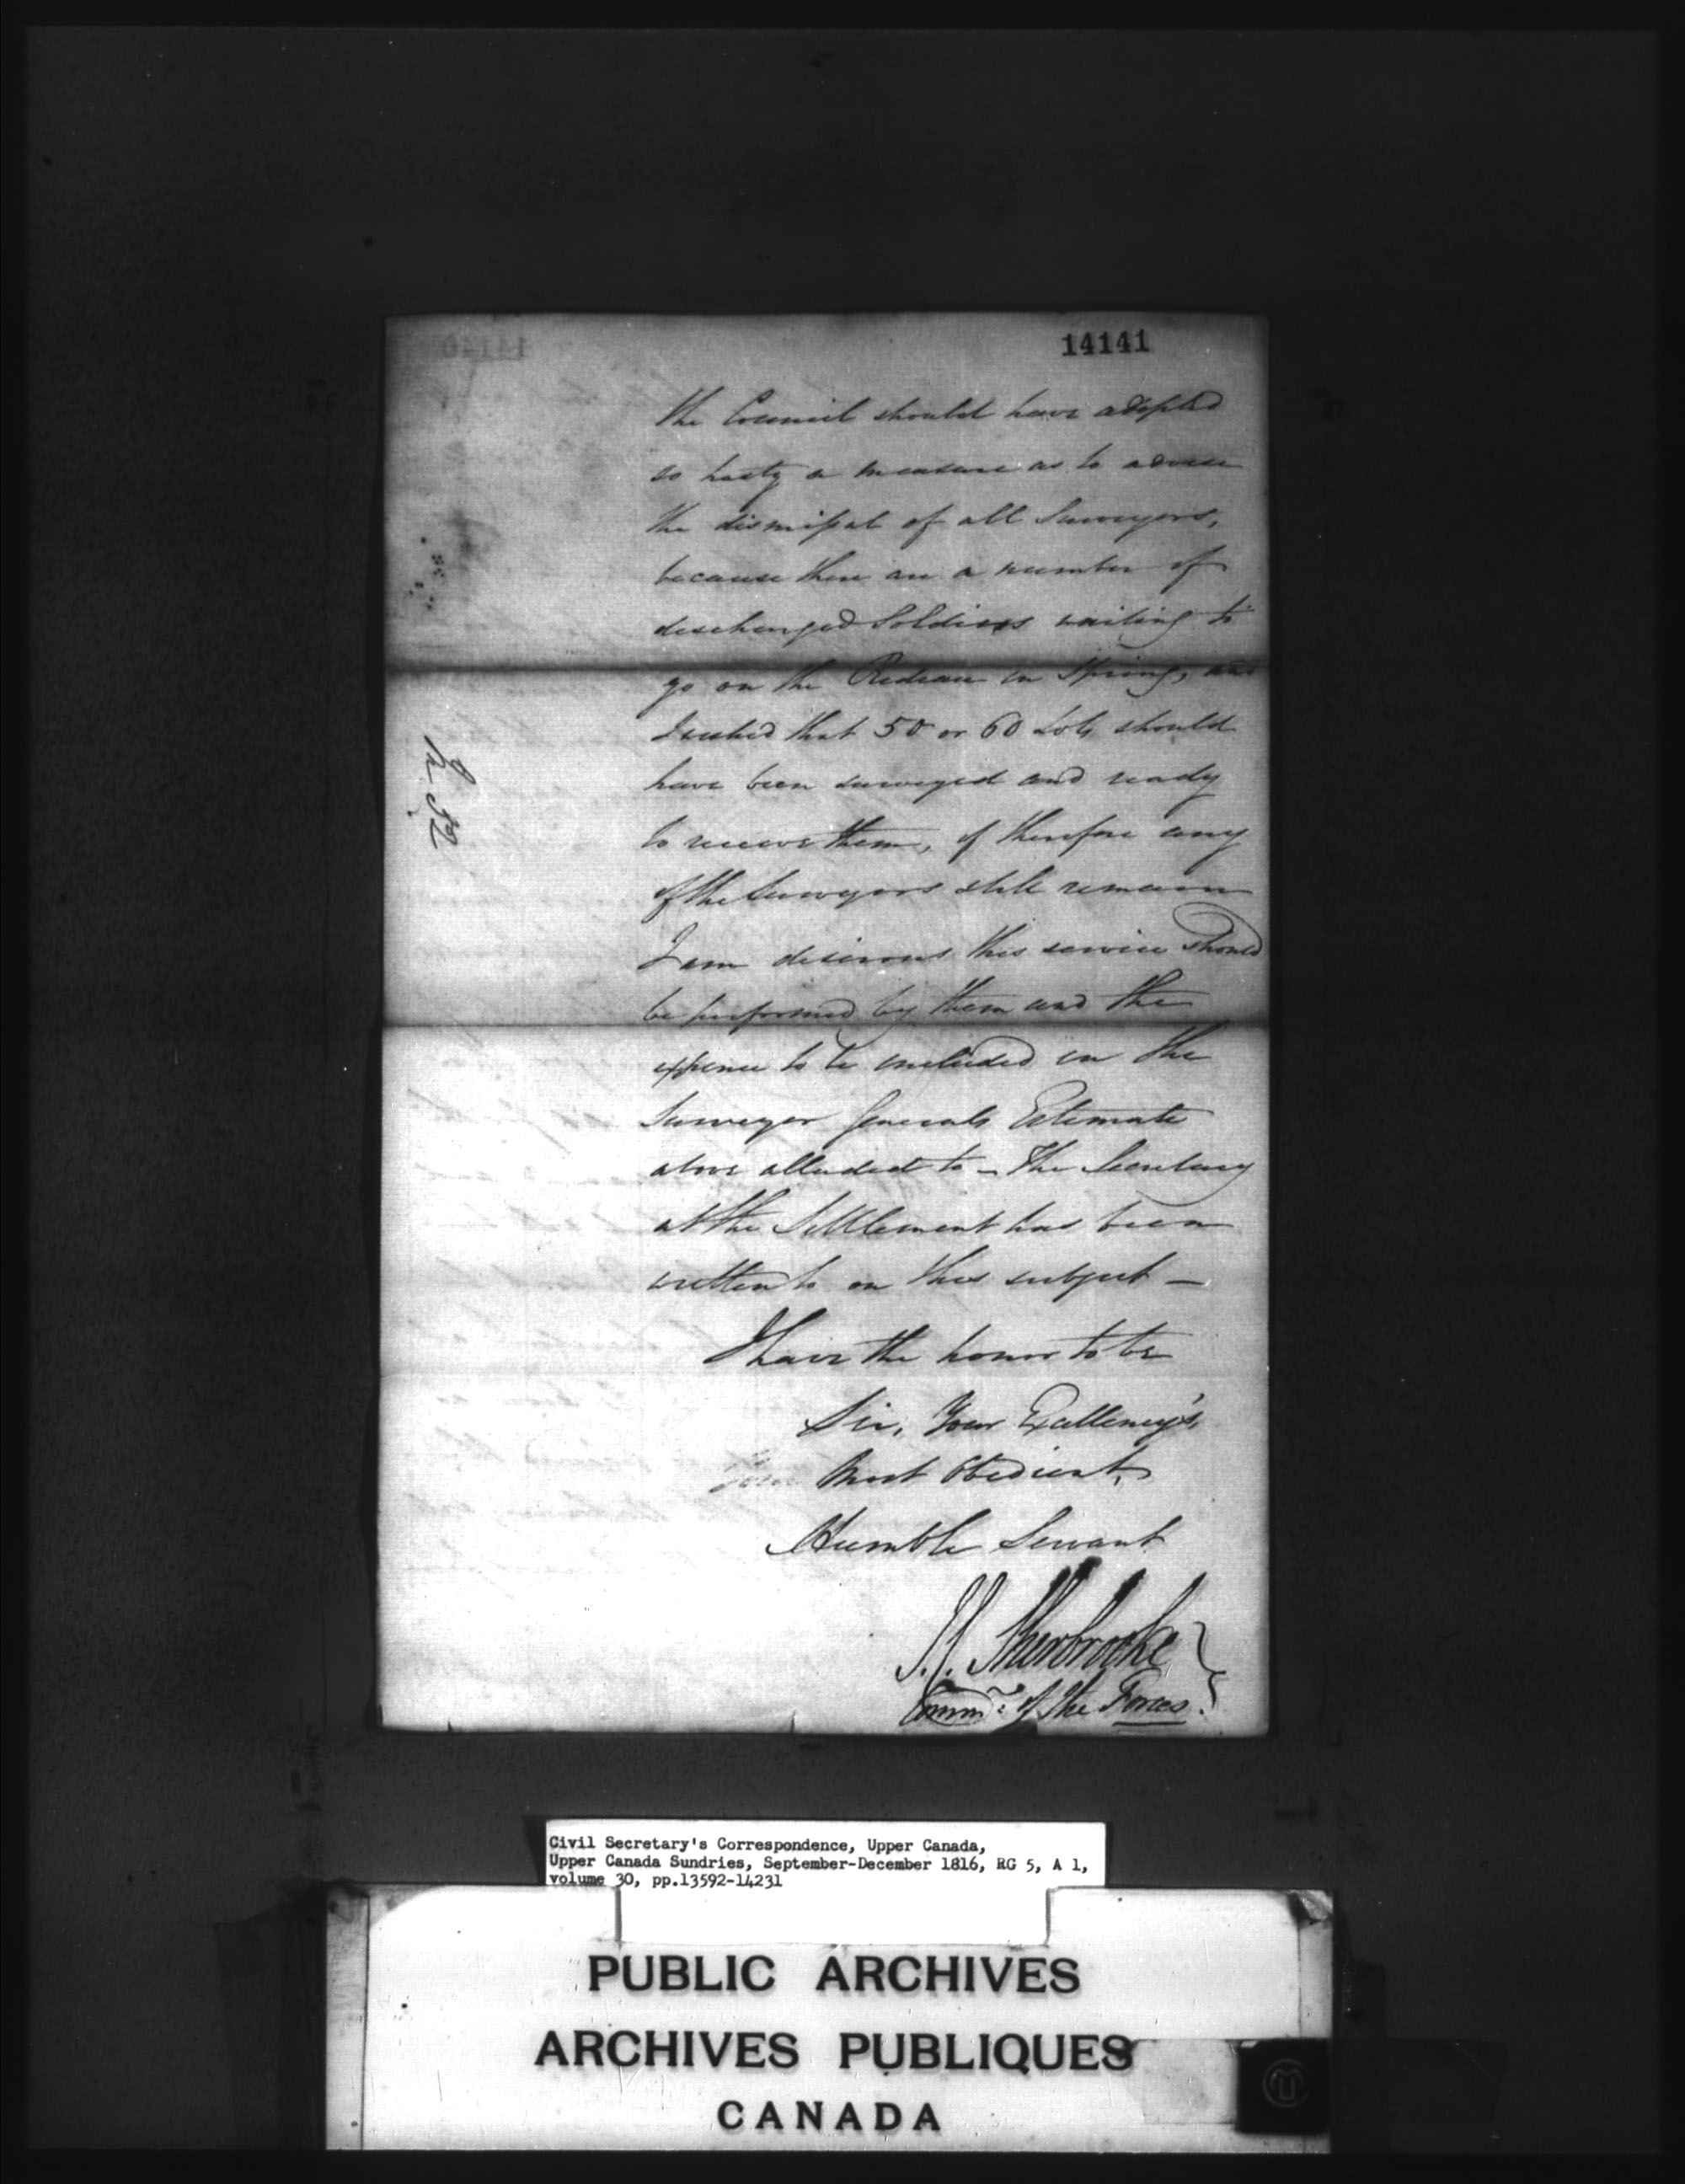 14141
the Council should have adopted
so hasty a measure as to advise
the dismissal of all Surveyors,
because there are a number of
discharged Soldiers waiting to
go on the Redeau in Spring, and
I wished that 50 or 60 Lots should
have been surveyed and ready
to receive them, if therefore any
of the Surveyors still remain
I am desirous this service should
be performed by them and the
expence to be included in the
Surveyor Generals Estimate
above alluded to – The Secretary
at the Settlement has been
written to on this subject –
I have the honor to be
Sir, Your Excellency's,
Most Obedient,
Humble Servant
J. C. Sherbrooke
Comm.r of the Forces.
Civil Secretary's Correspondence, Upper Canada,
Upper Canada Sundries, September-December 1816, RG 5, A 1,
volume 30, pp.13592-14231
PUBLIC ARCHIVES
ARCHIVES PUBLIQUES
CANADA